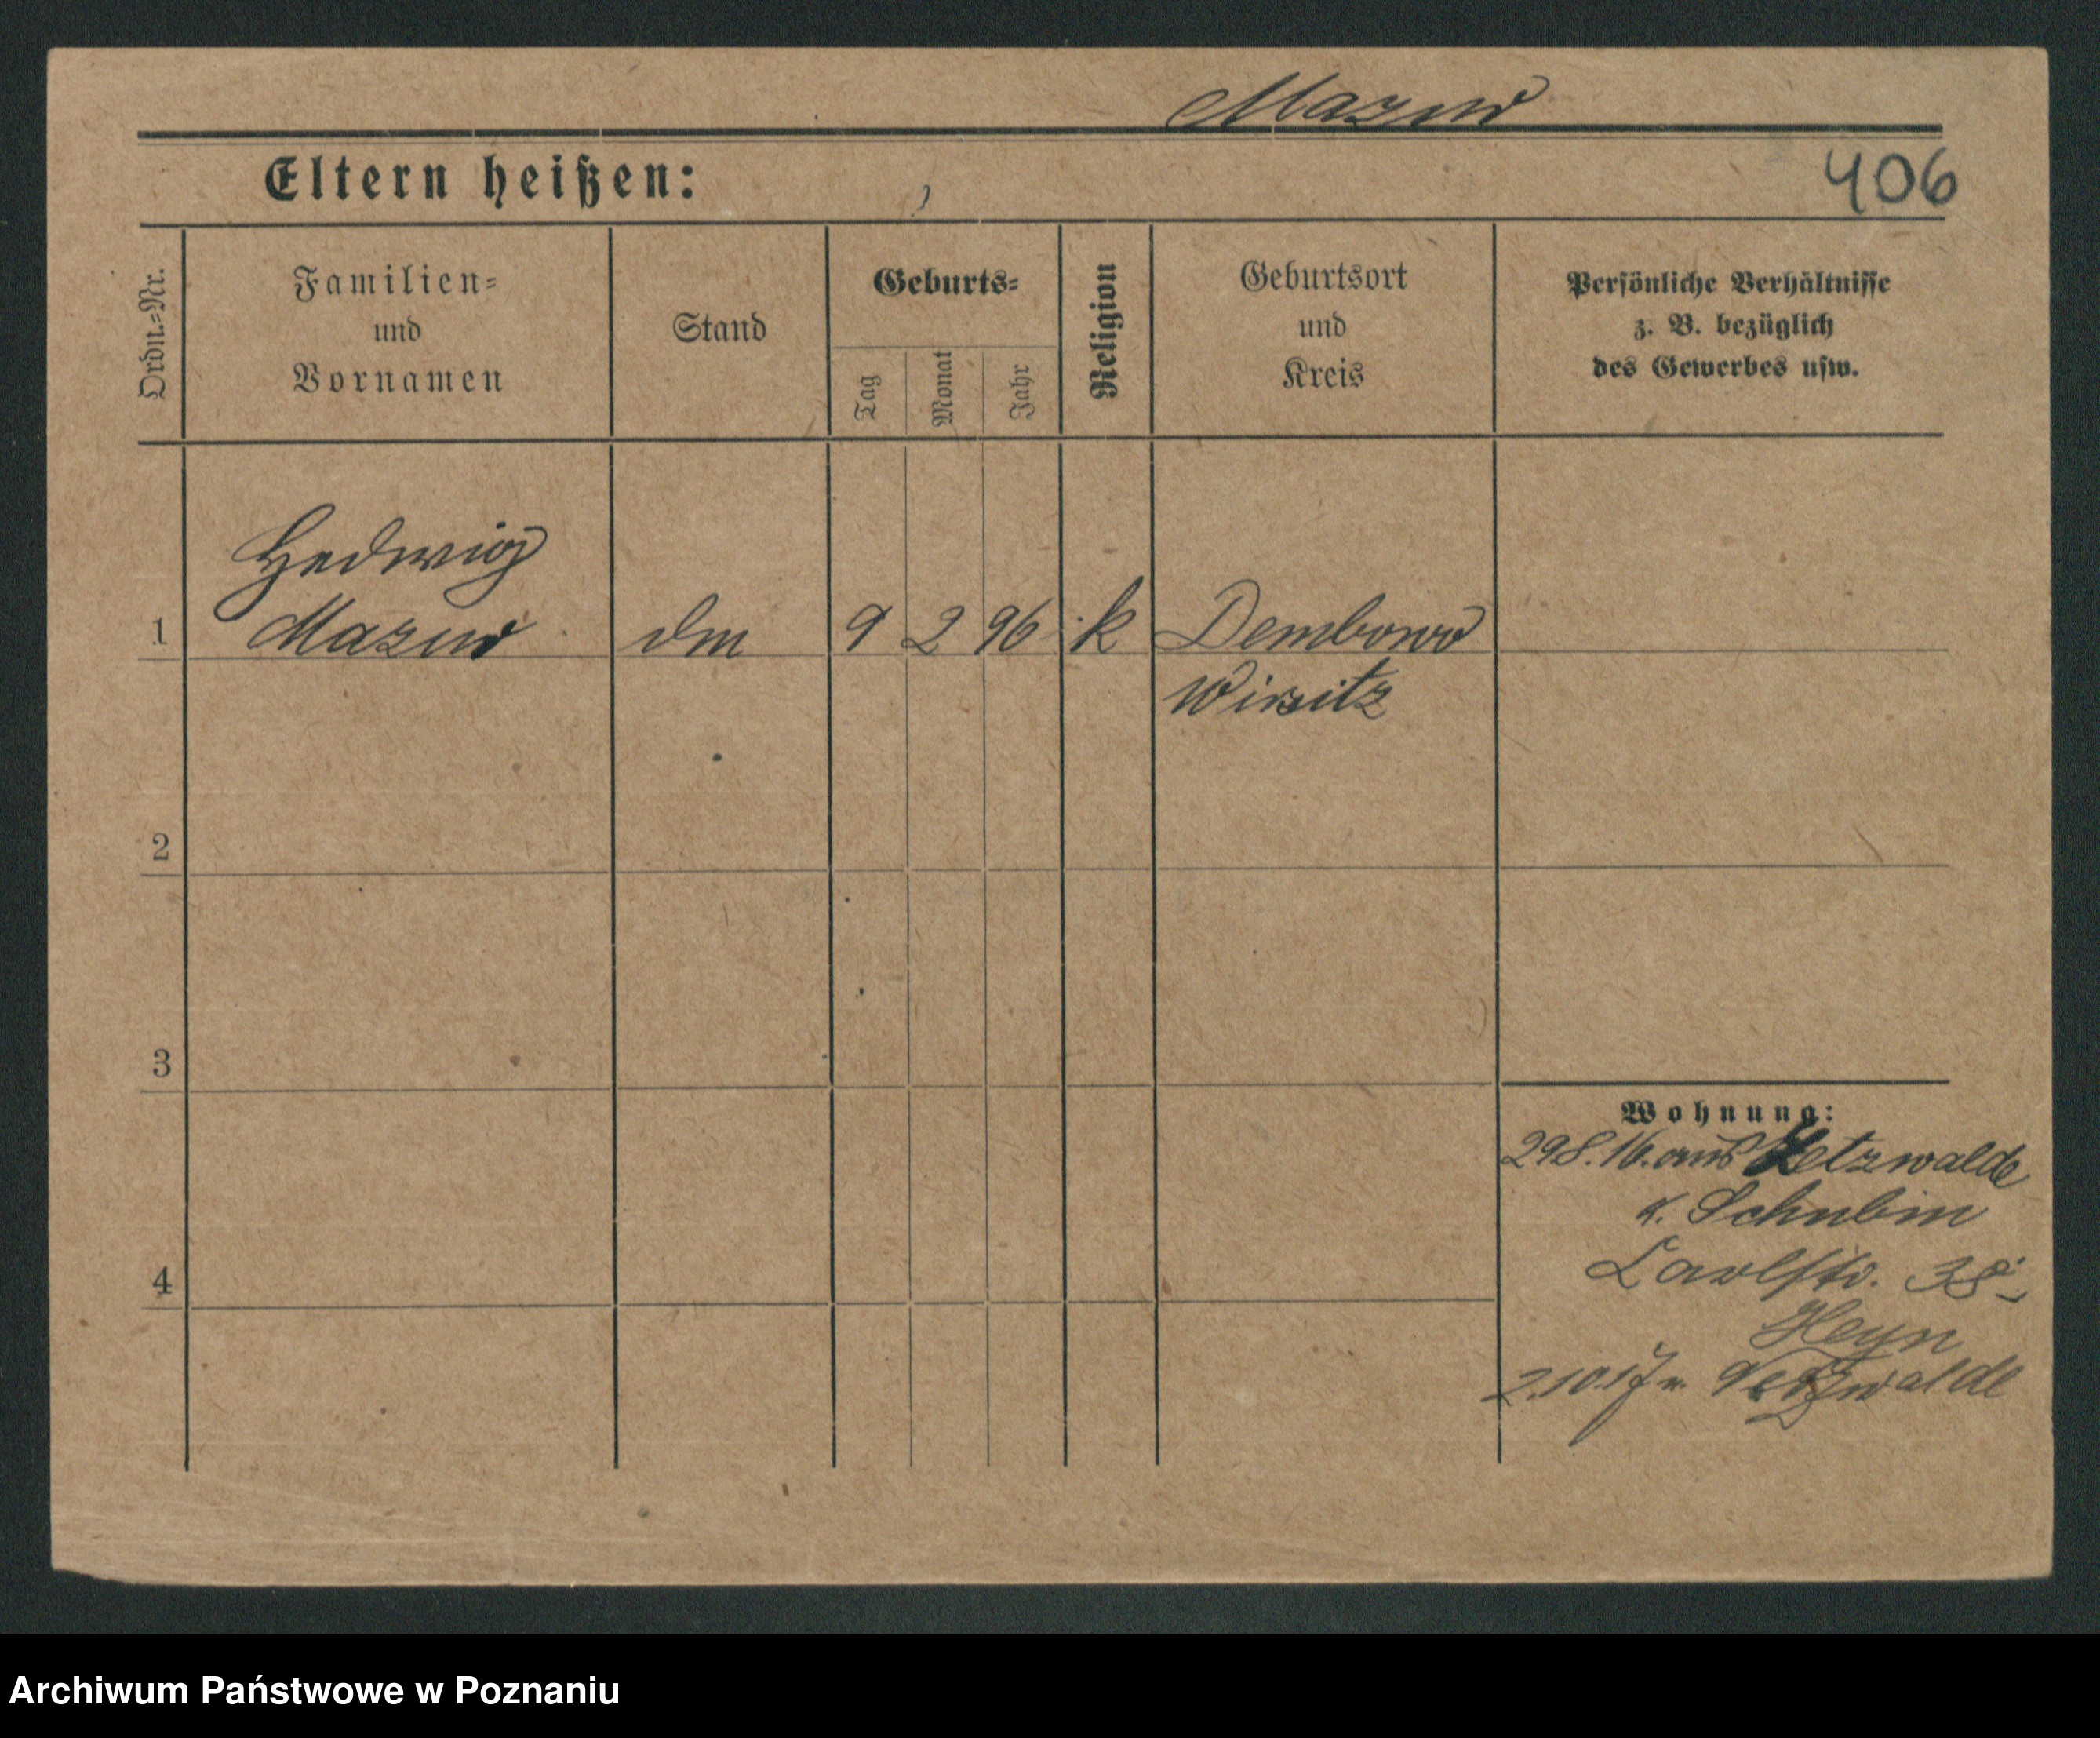 Mazur
Eltern heißen:
406
Ordn.-Nr.
Familien-
und
Vornamen
Stand
Geburts-
Tag
Monat
Jahr
Religion
Geburtsort
und
Kreis
Persönliche Verhältnisse
z. B. bezüglich
des Gewerbes usw.
Hedwig
1 Mazur dm 9 2 96 k Dembowo
Wirsitz
2
3
4
Wohnung:
29 8. 16. aus Netzwalde
K. Schubin
Carlstr. 38
Heyn
2.10.17 n. Netzwalde
Archiwum Państwowe w Poznaniu